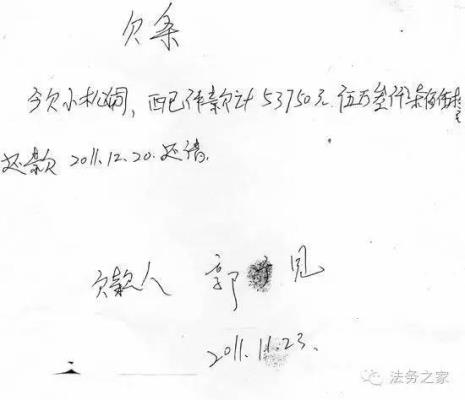 欠条
今欠小松闹, 西巴件款计53750元.伍万叁仟柒佰伍拾元
还款 2011.12.20.还清.
欠款人 郭 见
2011.11.23.
法务之家